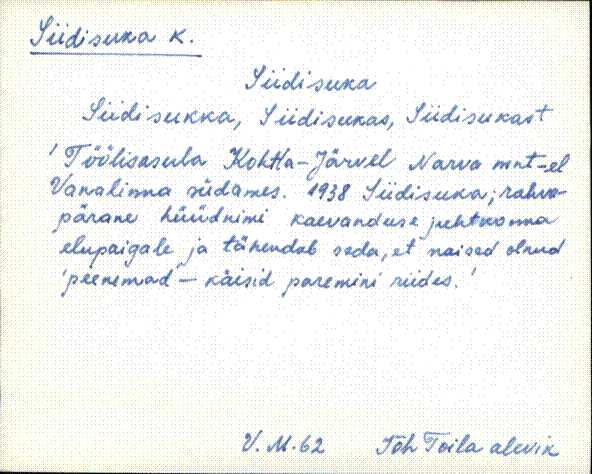 Siidisuka k.
Siidisuka
Siidisukka, Siidisukas, Siidisukast
'Töölisasula Kohtla-Järvel Narva mnt-el
Vanalinna südames. 1938 Siidisuka; rahva-
pärane hüüdnimi kaevanduse juhtkonna
elupaigale ja tähendab seda, et naised olnud
'peenemad' – käisid paremini riides.'
V. M. 62 Jõh Toila alevik